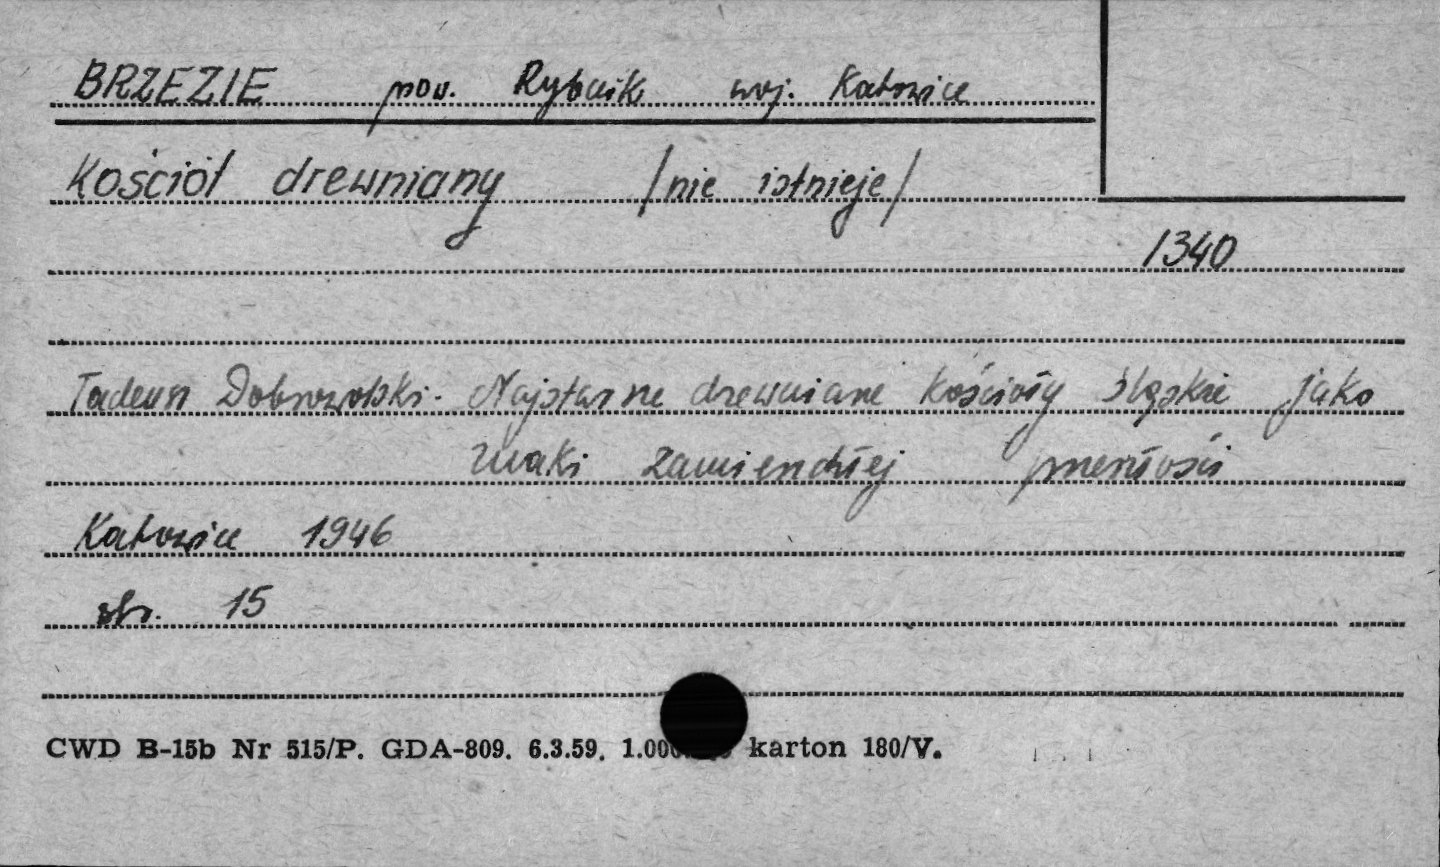 BRZEZIE pow. Rybnik woj. Katowice
Kościół drewniany /nie istnieje/
1340
Tadeusz Dobrowolski - Najstarsze drewniane kościoły śląskie jako
znaki zamierzchłej przeszłości
Katowice 1946
str. 15
CWD B-15b Nr 515/P. GDA-809. 6.3.59. karton 180/V.